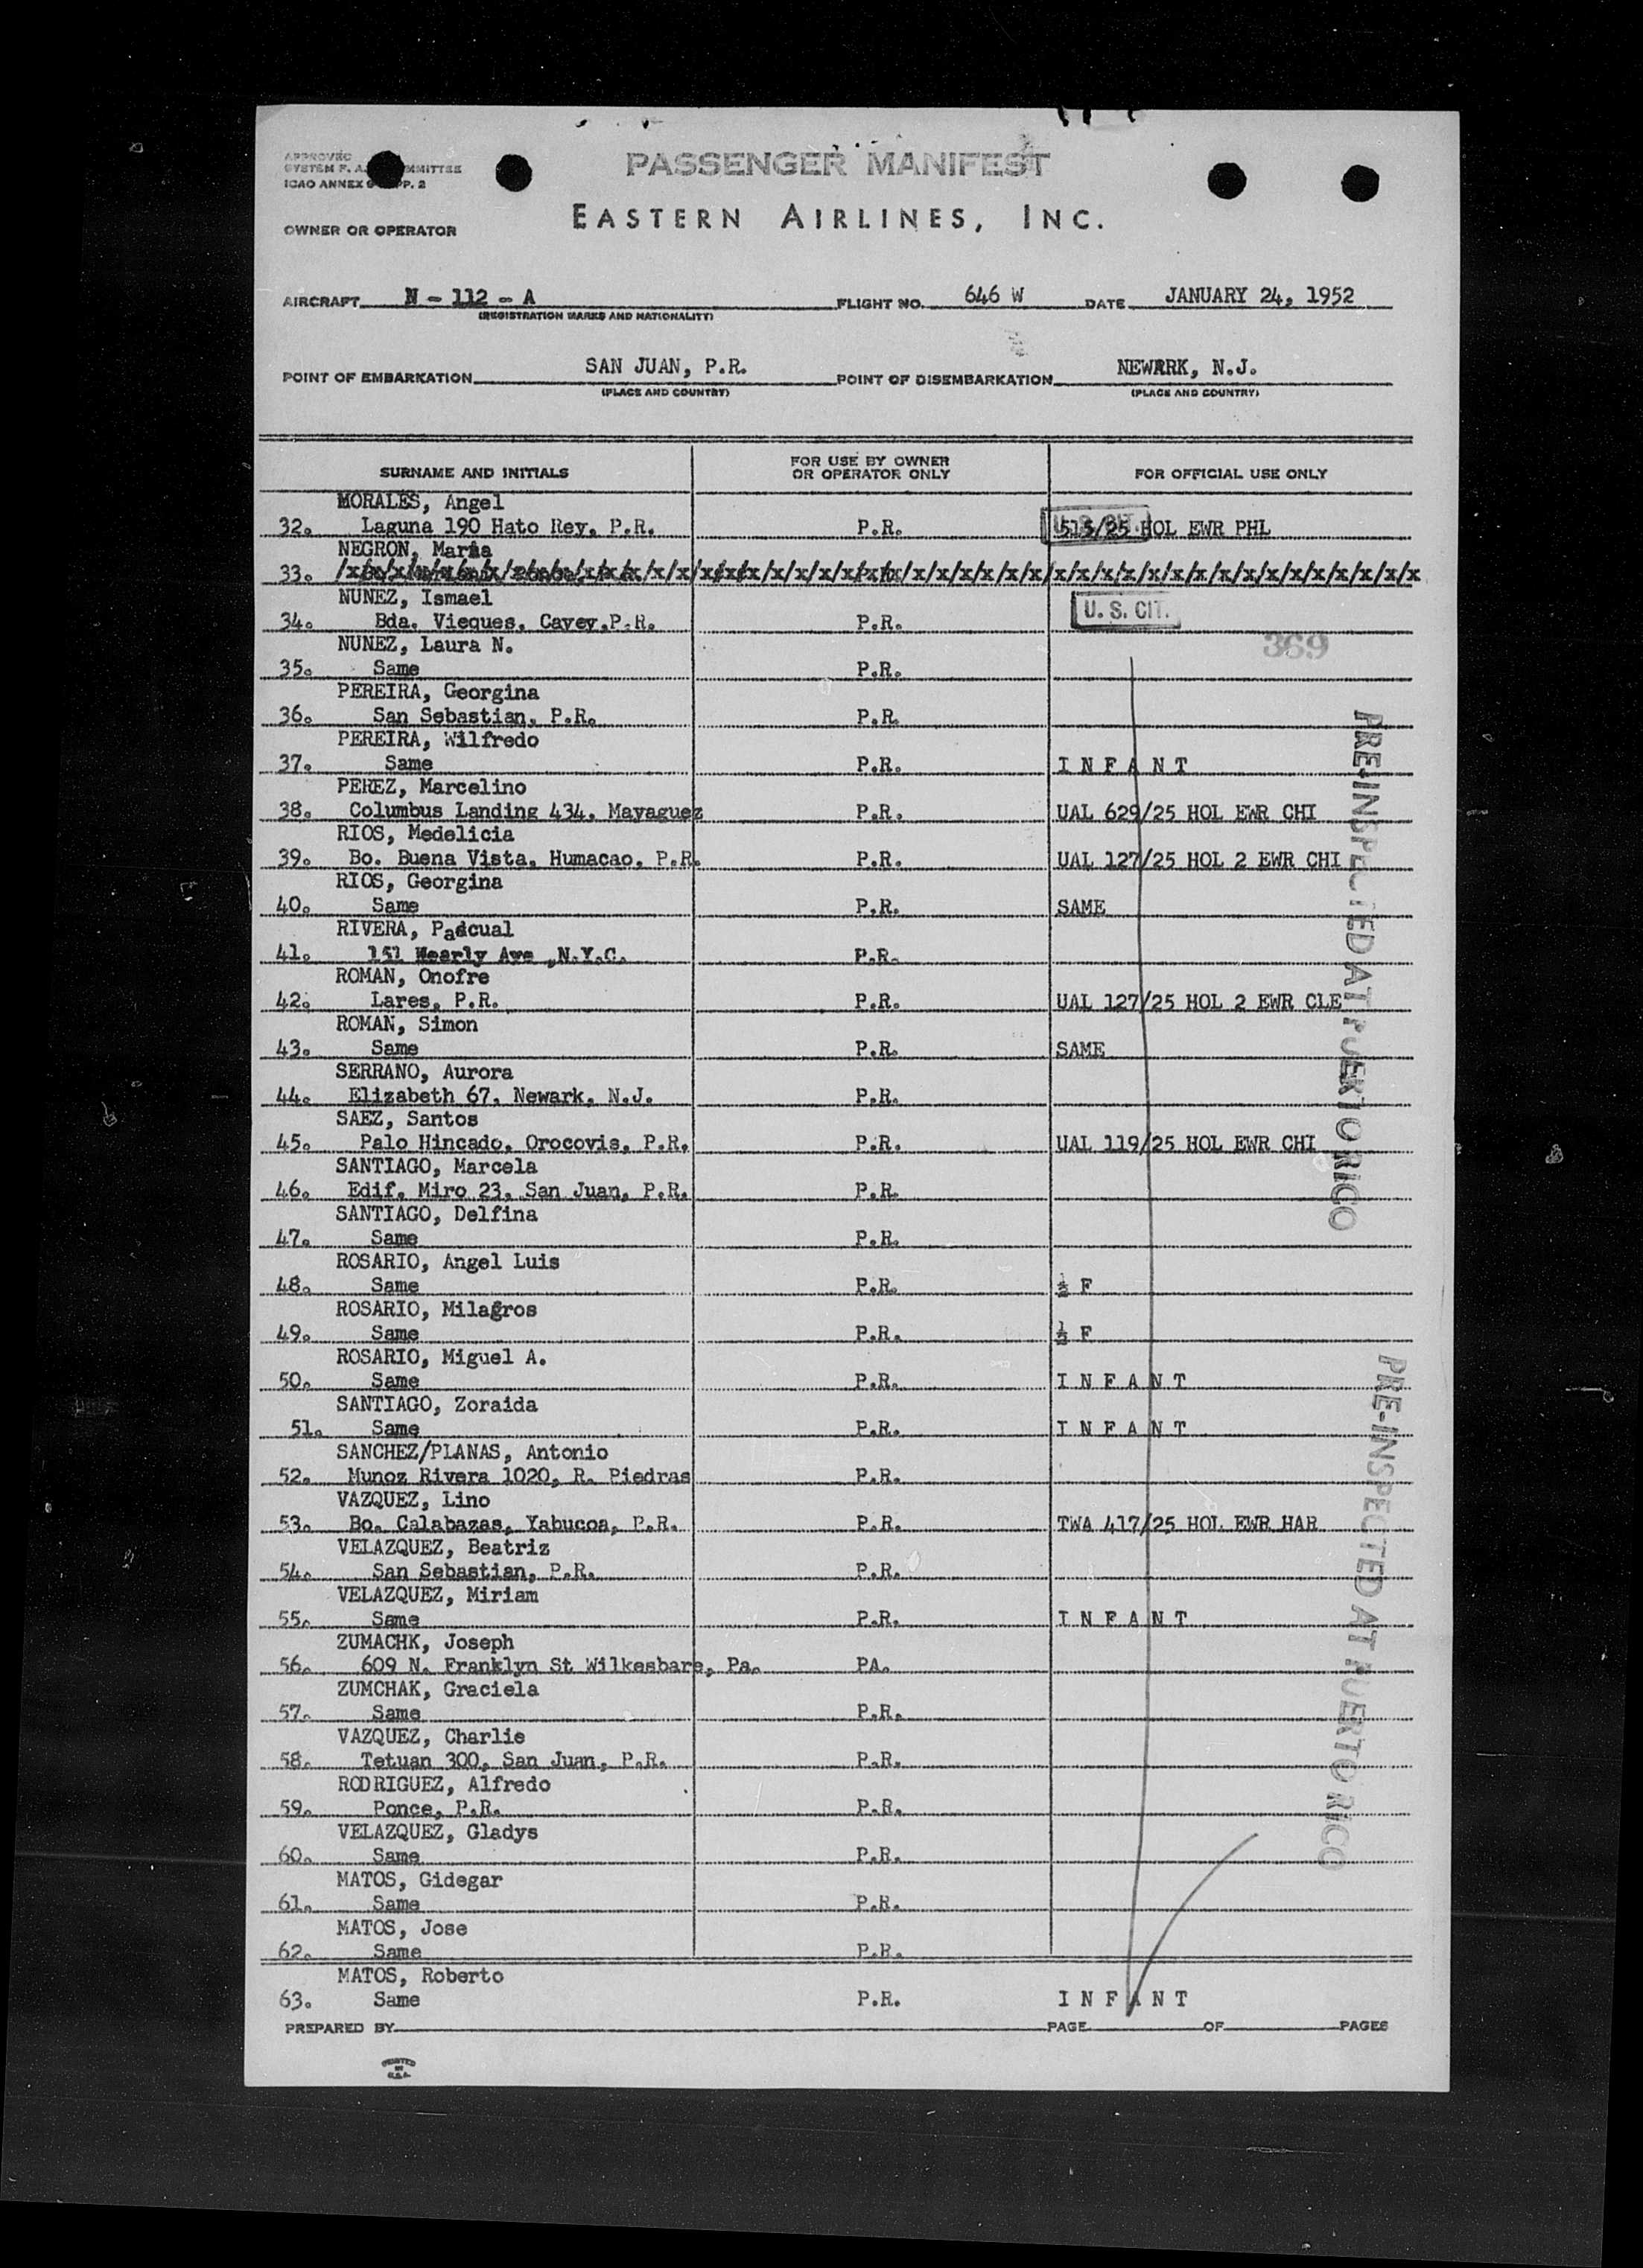 APPROVED
SYSTEM F. A. MMITTEE
ICAO ANNEX 9 PP. 2
PASSENGER MANIFEST
EASTERN AIRLINES, INC.
OWNER OR OPERATOR
AIRCRAFT N - 112 - A FLIGHT NO. 646 W DATE JANUARY 24, 1952
(REGISTRATION MARKS AND NATIONALITY)
POINT OF EMBARKATION SAN JUAN, P.R. POINT OF DISEMBARKATION NEWARK, N.J.
(PLACE AND COUNTRY) (PLACE AND COUNTRY)
SURNAME AND INITIALS FOR USE BY OWNER OR OPERATOR ONLY FOR OFFICIAL USE ONLY
MORALES, Angel
32. Laguna 190 Hato Rey, P.R. P.R. 515/25 HOL EWR PHL
NEGRON, Maria
33.
NUNEZ, Ismael
34. Bda. Vieques, Cayey, P.R. P.R. U. S. CIT.
NUNEZ, Laura N. 369
35. Same P.R.
PEREIRA, Georgina
36. San Sebastian, P.R. P.R.
PEREIRA, Wilfredo
37. Same P.R. I N F A N T
PEREZ, Marcelino
38. Columbus Landing 434, Mayaguez P.R. UAL 629/25 HOL EWR CHI
RIOS, Medelicia
39. Bo. Buena Vista, Humacao, P.R. P.R. UAL 127/25 HOL 2 EWR CHI
RIOS, Georgina
40. Same P.R. SAME
RIVERA, Pascual
41. 151 Ave N.Y.C. P.R.
ROMAN, Onofre
42. Lares, P.R. P.R. UAL 127/25 HOL 2 EWR CLE
ROMAN, Simon
43. Same P.R. SAME
SERRANO, Aurora
44. Elizabeth 67, Newark, N.J. P.R.
SAEZ, Santos
45. Palo Hincado, Orocovis, P.R. P.R. UAL 119/25 HOL EWR CHI
SANTIAGO, Marcela
46. Edif. Miro 23, San Juan, P.R. P.R.
SANTIAGO, Delfina
47. Same P.R.
ROSARIO, Angel Luis
48. Same P.R. ½ F
ROSARIO, Milagros
49. Same P.R. ½ F
ROSARIO, Miguel A.
50. Same P.R. I N F A N T
SANTIAGO, Zoraida
51. Same P.R. I N F A N T
SANCHEZ/PLANAS, Antonio
52. Munoz Rivera 1020, R. Piedras P.R.
VAZQUEZ, Lino
53. Bo. Calabazas, Yabucoa, P.R. P.R. TWA 417/25 HOL EWR HAR
VELAZQUEZ, Beatriz
54. San Sebastian, P.R. P.R.
VELAZQUEZ, Miriam
55. Same P.R. I N F A N T
ZUMACHK, Joseph
56. 609 N. Franklyn St Wilkesbare, Pa. PA.
ZUMCHAK, Graciela
57. Same P.R.
VAZQUEZ, Charlie
58. Tetuan 300, San Juan, P.R. P.R.
RODRIGUEZ, Alfredo
59. Ponce, P.R. P.R.
VELAZQUEZ, Gladys
60. Same P.R.
MATOS, Gidegar
61. Same P.R.
MATOS, Jose
62. Same P.R.
MATOS, Roberto
63. Same P.R. I N F A N T
PREPARED BY PAGE OF PAGES
PRINTED IN U.S.A.
PRE-INSPECTED AT PUERTO RICO
PRE-INSPECTED AT PUERTO RICO